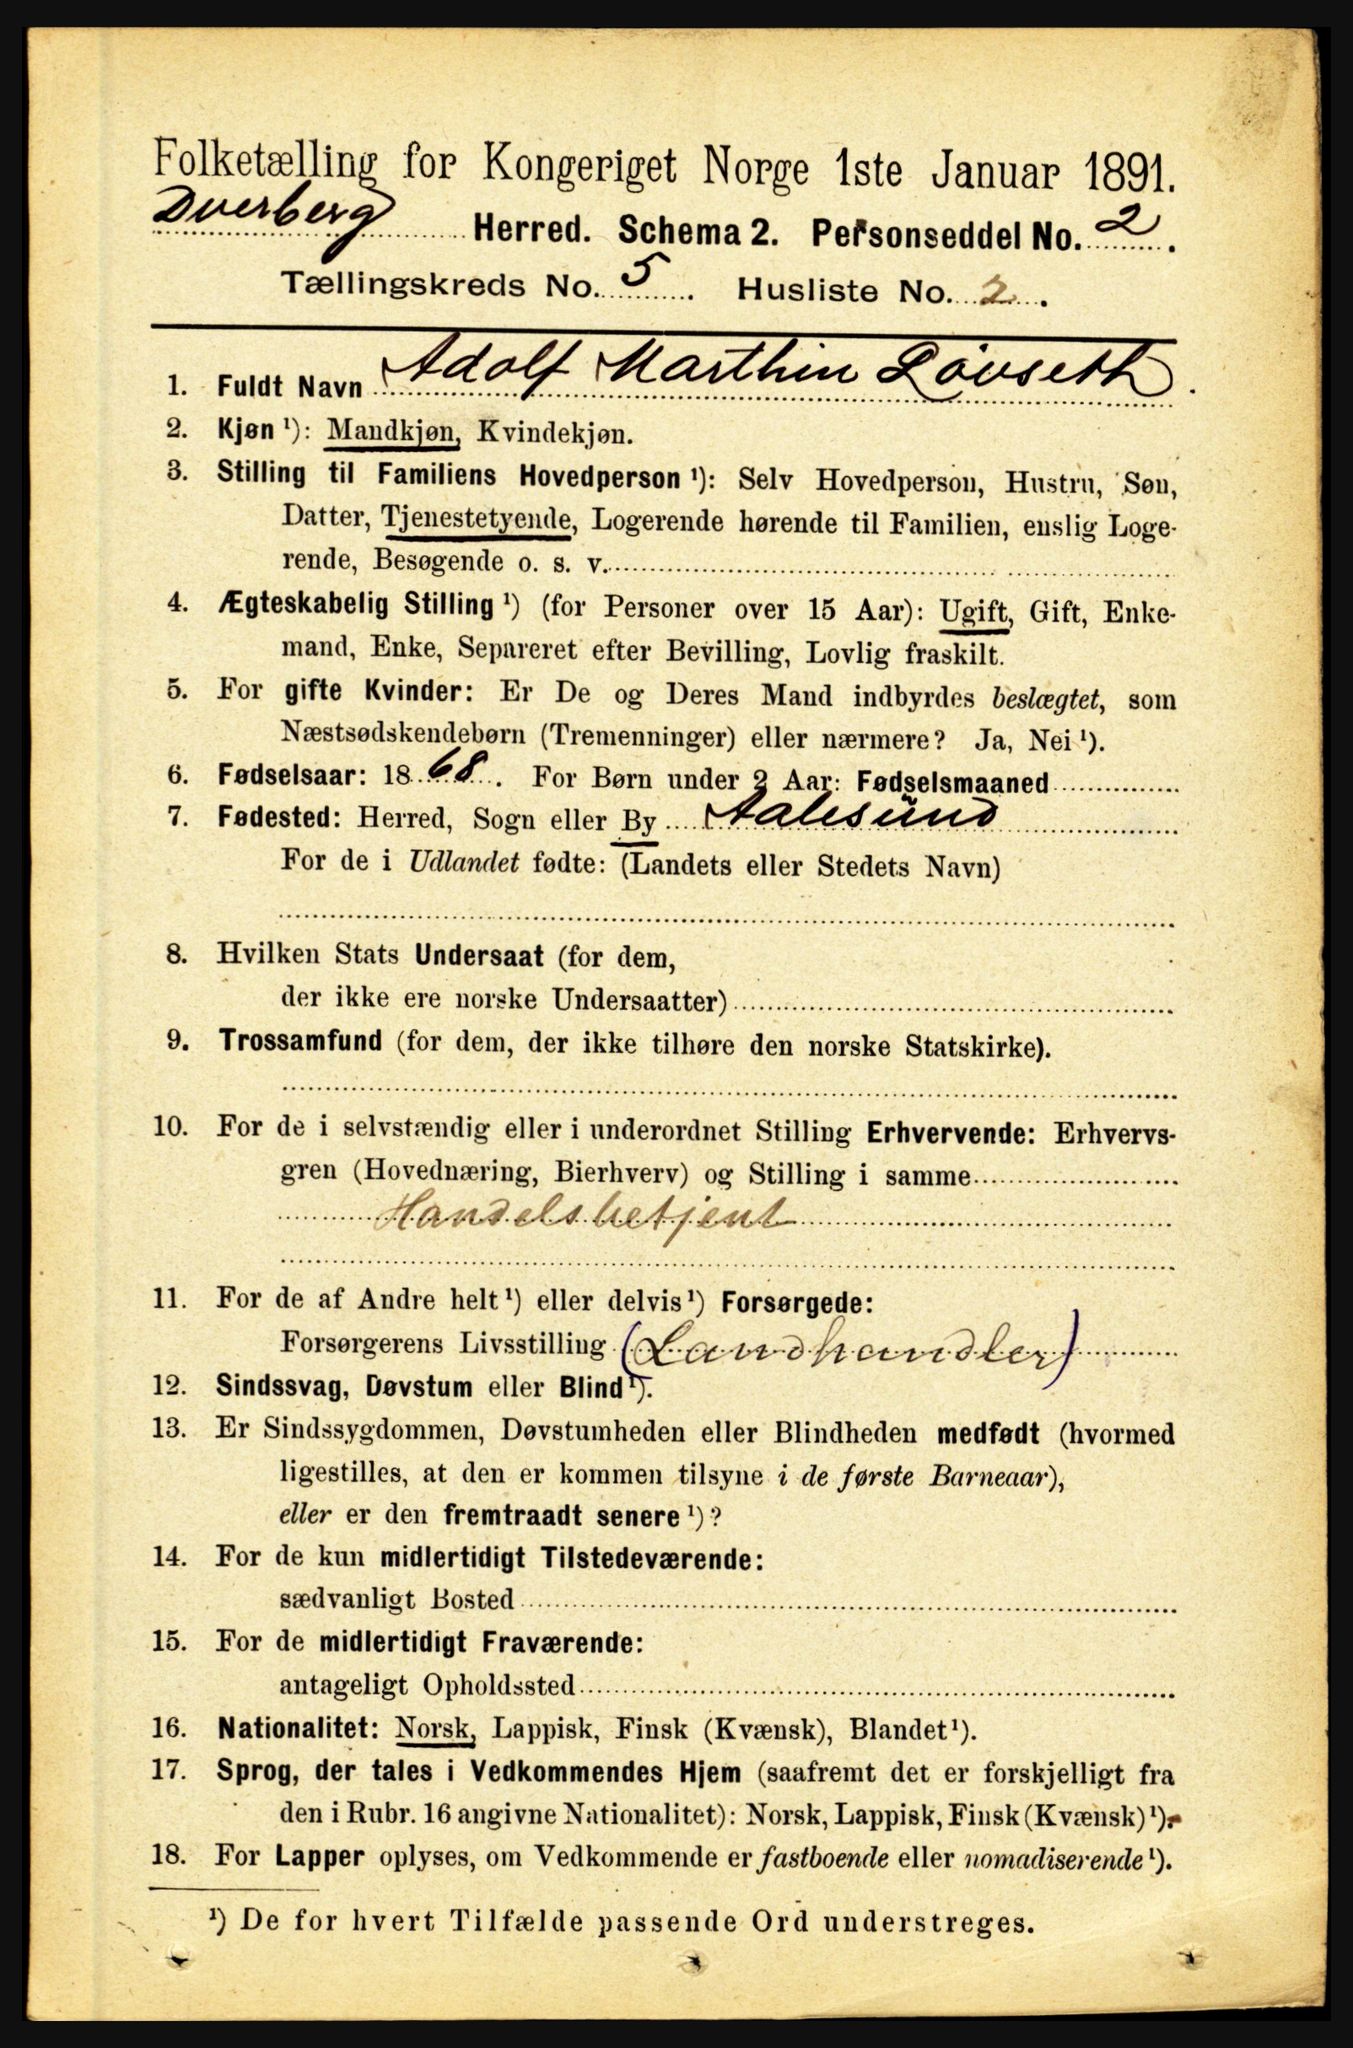 Folketælling for Kongeriget Norge 1ste Januar 1891.
Dverberg Herred. Schema 2. Personseddel No. 2.
Tællingskreds No. 5. Husliste No. 2.
1. Fuldt Navn Adolf Marthin Løvseth.
2. Kjøn ¹): Mandkjøn, Kvindekjøn.
3. Stilling til Familiens Hovedperson ¹): Selv Hovedperson, Hustru, Søn,
Datter, Tjenestetyende, Logerende hørende til Familien, enslig Loge-
rende, Besøgende o. s. v.
4. Ægteskabelig Stilling ¹) (for Personer over 15 Aar): Ugift, Gift, Enke-
mand, Enke, Separeret efter Bevilling, Lovlig fraskilt.
5. For gifte Kvinder: Er De og Deres Mand indbyrdes beslægtet, som
Næstsødskendebørn (Tremenninger) eller nærmere? Ja, Nei ¹).
6. Fødselsaar: 1868. For Børn under 2 Aar: Fødselsmaaned
7. Fødested: Herred, Sogn eller By Aalesund
For de i Udlandet fødte: (Landets eller Stedets Navn)
8. Hvilken Stats Undersaat (for dem,
der ikke ere norske Undersaatter)
9. Trossamfund (for dem, der ikke tilhøre den norske Statskirke).
10. For de i selvstændig eller i underordnet Stilling Erhvervende: Erhvervs-
gren (Hovednæring, Bierhverv) og Stilling i samme
Handelsbetjent
11. For de af Andre helt ¹) eller delvis ¹) Forsørgede:
Forsørgerens Livsstilling (Landhandler)
12. Sindssvag, Døvstum eller Blind ¹).
13. Er Sindssygdommen, Døvstumheden eller Blindheden medfødt (hvormed
ligestilles, at den er kommen tilsyne i de første Barneaar),
eller er den fremtraadt senere ¹)?
14. For de kun midlertidigt Tilstedeværende:
sædvanligt Bosted
15. For de midlertidigt Fraværende:
antageligt Opholdssted
16. Nationalitet: Norsk, Lappisk, Finsk (Kvænsk), Blandet ¹).
17. Sprog, der tales i Vedkommendes Hjem (saafremt det er forskjelligt fra
den i Rubr. 16 angivne Nationalitet): Norsk, Lappisk, Finsk (Kvænsk) ¹).
18. For Lapper oplyses, om Vedkommende er fastboende eller nomadiserende ¹).
¹) De for hvert Tilfælde passende Ord understreges.